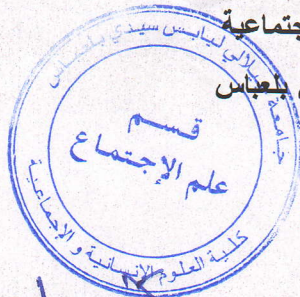 جتماعية
بلعباس
جامعة جيلالي ليابس سيدي بلعباس
قسم
علم الإجتماع
كلية العلوم الإنسانية و الإجتماعية